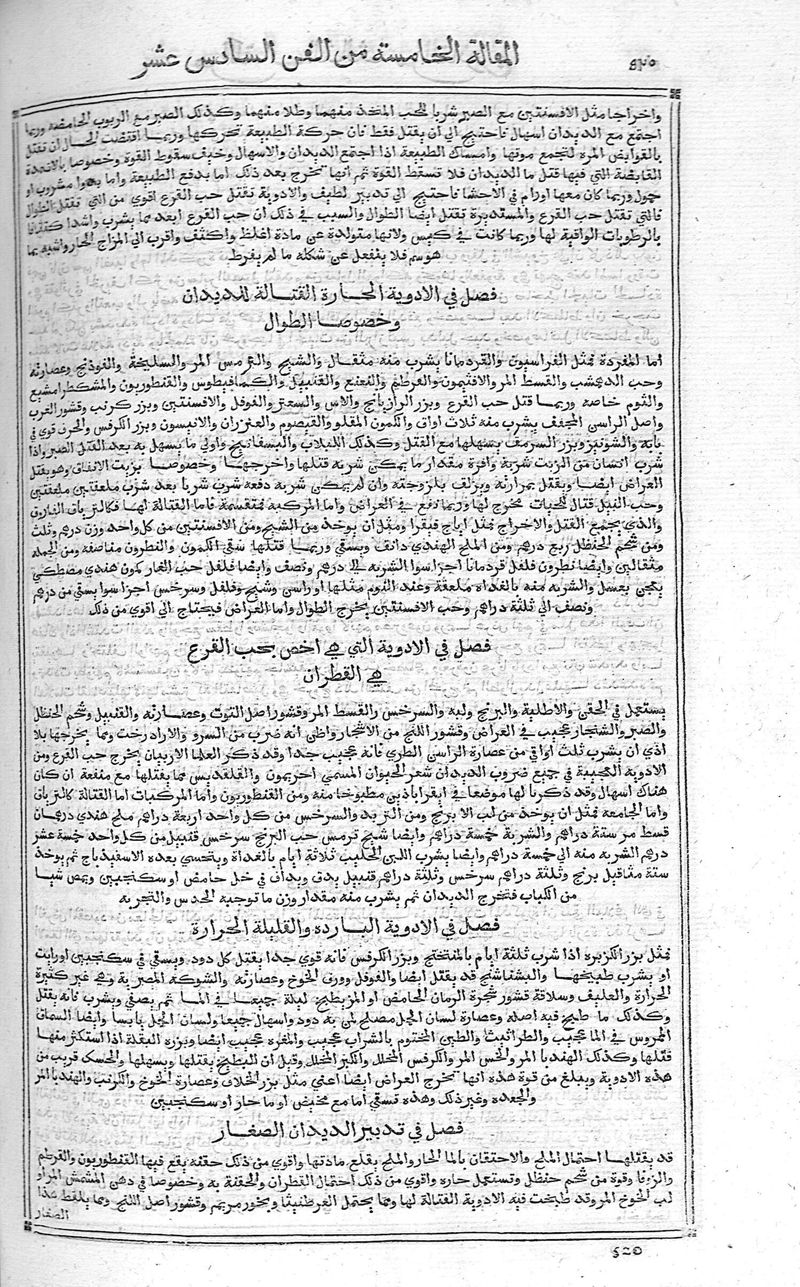 المقالة الخامسة من الفن السادس عشر
واخراجا مثل الافسنتين مع الصبر شربا للحب المتخذ منهما وطلا منهما وكذلك الصبر مع الربوب الحامضه وربما
اجتمع مع الديدان اسهال فاحتيج الي ان يقتل فقط فان حركة الطبيعة تخرجها وربما اقتضت الحال ان تقتل
بالقوابض المره لتجمع موتها وامساك الطبيعة اذا اجتمع الديدان والاسهال وخيف سقوط القوة وخصوصا بالاغذية
القابضة التي فيها قتل ما للديدان فلا تسقط القوة ثم انها تخرج بعد ذلك اما بدفع الطبيعة واما بدوا مشروب او
حمول وربما كان معها اورام في الاحشا فاحتيج الي تدبير لطيف والادوية تقتل حب القرع اقوي من التي تقتل الطوال
فالتي تقتل حب القرع والمستديرة تقتل ايضا الطوال والسبب في ذلك ان حب القرع ابعد مما يشرب واشد
بالرطوبات الواقية لها وربما كانت في كيس ولانها متولدة عن مادة اغلظ واكثف واقرب الي المزاج الحار واشبه بما
هو سم فلا ينفعل عن شكله ما لم يفرط
فصل في الادوية الحارة القتالة للديدان
وخصوصا الطوال
اما المفردة فمثل الفراسيون والقردمانا يشرب منه مثقال والشيح والترمس المر والسليخة والفوذنج وعصارته
وحب والقسط المر والافتيمون والقرطم والنعنع والقنبيل والكمافيطوس والقنطوريون والمشكطرامشيع
والثوم خاصه وربما قتل حب القرع وبزر الرازيانج والاس والسعتر والفوفل والافسنتين وبزر كرنب وقشور الغرب
واصل الراسن المجفف يشرب منه ثلاث اواق والكمون المقلو والقيصوم والانيسون وبزر الكرفس والحرف قوي في
بابه والشونيز وبزر السرمق يسهلها مع القتل وكذلك اللبلاب والبسفانيج واولي ما يسهل به بعد القتل الصبر واذا
شرب انسان من الزيت شربة وافرة مقدار ما يمكن شربه قتلها واخرجها وخصوصا بزيت الانفاق وهو يقتل
العراض ايضا ويقتل بمرارته ويزلق بلزوجته وان لم يمكن شربه دفعة شرب شربا بعد شرب ملعقتين ملعقتين
وحب النيل قتال للحيات مخرج لها وربما دفع في العراض واما المركبه فمنقسمة فاما القتالة لها فكالترياق الفاروق
والذي يجتمع القتل والاخراج فمثل ايارج فيقرا ومثل ان يوخذ من الشيح ومن الافسنتين من كل واحد وزن درهم وثلث
ومن شحم الحنظل ربع درهم ومن الملح الهندي دانق ويسقي وربما قتلها سقي الكمون والنطرون مناصفه ومن الجمله
مثقالين وايضا نطرون فلفل قردمانا اجزا سوا الشربه الي درهم ونصف وايضا فلفل حب الغار كمون هندي مصطكي
يعجن بعسل والشربه منه بالغداة ملعقة وعند النوم مثلها او راسن وشيح وفلفل وسرخس اجزا سوا يسقي من درهم
ونصف الي ثلثة دراهم وحب الافسنتين يخرج الطوال واما العراض فيحتاج الي اقوي من ذلك
فصل في الادوية التي هي اخص بحب القرع
هي القطران
يستعمل في الحقن والاطلية والبرنج ولبه والسرخس والقسط المر وقشور اصل التوت وعصارته والقنبيل وشحم الحنظل
والصبر والشنجار عجيب في العراض وقشور اللنج من الاشجار واظن انه ضرب من السرو والازادرخت ومما يخرجها بلا
اذي ان يشرب ثلث اواقي من عصارة الراسن الطري فانه عجيب جدا وقد ذكر العلما الاربيان يخرج حب القرع ومن
الادوية العجيبة في جميع ضروب الديدان شعر الحيوان المسمي احريمون والقلقديس مما يقتلها مع منفعة ان كان
هناك اسهال وقد ذكرنا لها موضعا في اقرابادين مطبوخا منه ومن القنطوريون واما المركبات اما القتالة كالترياق
واما الجامعة فمثل ان يوخذ من لب البرنج ومن التربد والسرخس من كل واحد اربعة دراهم ملح هندي درهمان
قسط مر ستة دراهم والشربة خمسة دراهم وايضا شيح ترمس حب البرنج سرخس قنبيل من كل واحد خمسة عشر
درهم الشربه منه الي خمسة دراهم وايضا يشرب اللبن الحليب ثلاثة ايام بالغداة ويتحسي بعده الاسفيدباج ثم يوخذ
ستة مثاقيل برنج وثلثة دراهم سرخس وثلثة دراهم قنبيل يدق ويداف في خل حامض او سكنجبين ويمص شيا
من الكباب فتخرج الديدان ثم يشرب منه مقدار وزن ما توجبه الحدس والتجربه
فصل في الادوية البارده والقليلة الحرارة
فمثل بزر الكزبره اذا شرب ثلثة ايام بالمنفختج وبزر الكرفس فانه قوي جدا يقتل كل دود ويسقي في سكنجبين او رايب
او يشرب طبيخها والبشفاينج قد يقتل ايضا والفوفل وورق الخوخ وعصارته والشوكه المصرية وهي غير كثيرة
الحرارة والعليق وسلاقة قشور شجرة الرمان الحامض او المز يطبخ ليلة جميعا في الما ثم يصفي ويشرب فانه يقتل
وكذلك ما طبخ فيه اصله وعصارة لسان الحمل مصلح لمن به دود واسهال جميعا ولسان الحمل يابسا وايضا السماق
الممروس في الما عجيب والطراثيث والطين المختوم بالشراب عجيب والمغره عجيب ايضا وبزره البقلة اذا استكثر منها
قتلها وكذلك الهندبا المر والخس المر والكرفس المخلل والكبر المخلل وقيل ان البطيخ يقتلها ويسهلها والحسك قريب من
هذه الادوية ويبلغ من قوة هذه انها تخرج العراض ايضا اعني مثل بزر الخلاف وعصارة الخوخ والكرنب والهندبا المر
والجعده وغير ذلك وهذه تسقي اما مع مخيض او ما حار او سكنجبين
فصل في تدبير الديدان الصغار
قد يقتلها احتمال الملح والاحتقان بالما الحار والملح يقلع مادتها واقوي من ذلك حقنه يقع فيها القنطوريون والقرطم
والزوفا وقوة من شحم حنظل وتستعمل حاره واقوي من ذلك احتمال القطران والحقنة به وخصوصا في دهن المشمش المر او
لب الخوخ المر وقد طبخت فيه الادوية القتالة لها ومما يحتمل العرطنيثا وبخور مريم وقشور اصل اللنج ومما يلقط هذا
الصغار